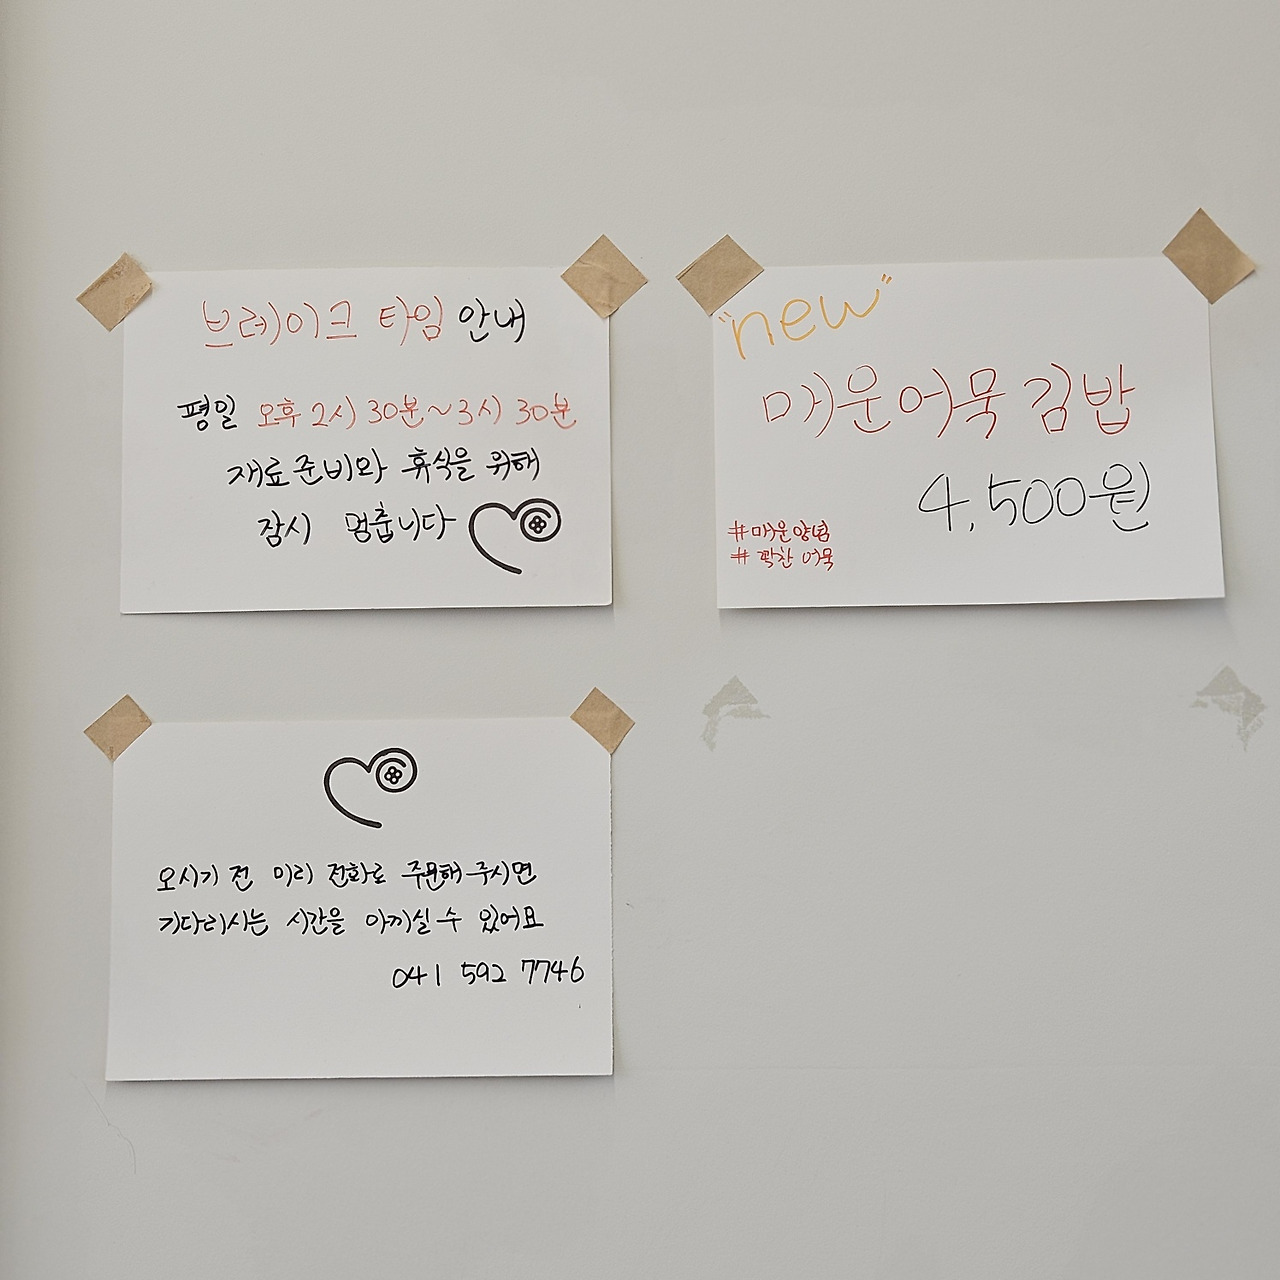 브레이크 타임 안내
평일 오후 2시 30분~3시 30분
재료준비와 휴식을 위해
잠시 멈춥니다
"new"
매운어묵김밥
4,500원
#매운양념
#꽉찬 어묵
오시기 전 미리 전화로 주문해주시면
기다리시는 시간을 아끼실 수 있어요
041 592 7746